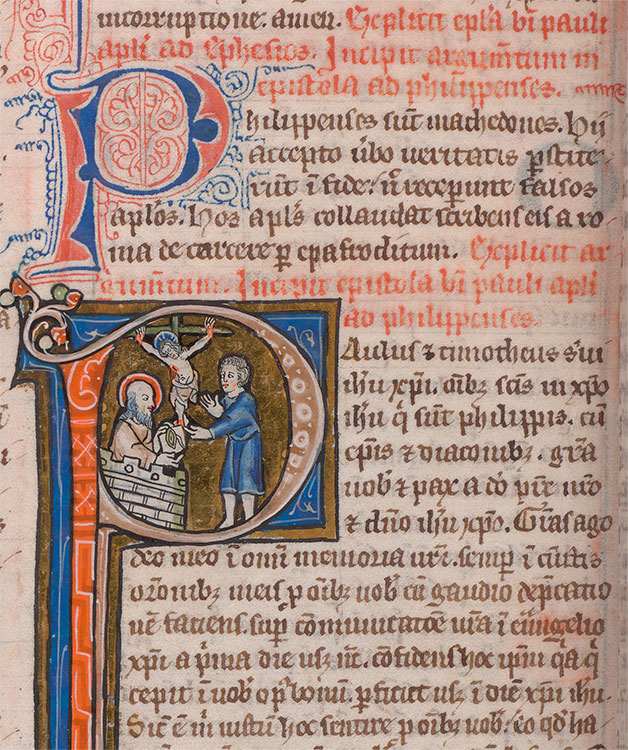 incorruptione. amen. Explicit epla bi pauli
apli ad ephesios. Incipit argumtum in
epistola ad philippenses.
Philippenses sūt machedones. Hij
accepto ūbo ueritatis pstite
rūt ī fide. n̄ receperunt falsos
aplos. Hos apls collaudat scribens eis a ro
ma de carcere p epafroditum. Explicit ar
gumtum. Incipit epistola bi pauli apli
ad philippenses.
Paulus ⁊ timotheus s̄ui
ihu xpi. oībꝫ scīs in xpo
ihu q̄ sunt philippis. cū
epis ⁊ diaconibꝫ. gr̄a
uob ⁊ pax a do pr̄e nr̄o
⁊ dn̄o ihu xpo. Gr̄as ago
deo meo ī omī memoria ur̄i. semp ī cūctis
or̄onibꝫ meis p oībꝫ uob cū gaudio dep̄catio
nē faciens. sup cōmunicatōe ur̄a ī euuangelio
xpi a p̄ma die usꝫ nc̄. confidens hoc ipm̄ q̄a q̄
cepit ī uob op bonum pficiet usꝫ ī diē xpi ihu
Sic ē m̄ iustum hoc sentire p oībꝫ uob. eo qd ha